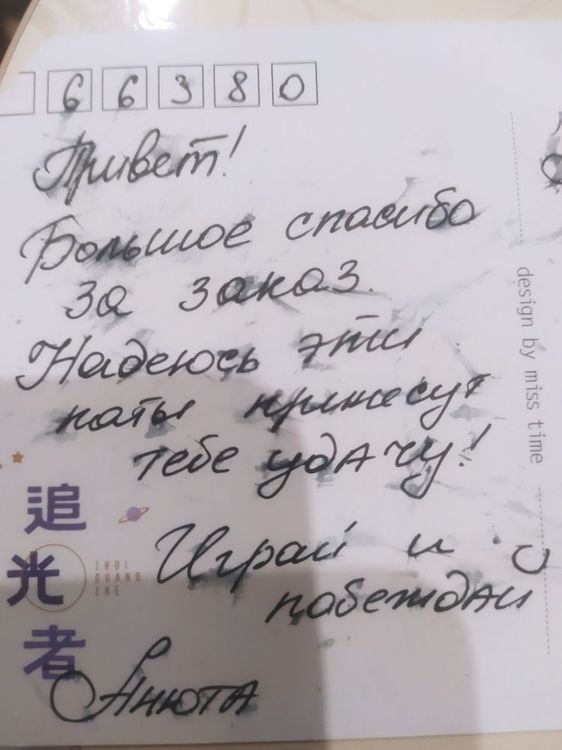 66380
Привет!
Большое спасибо
за заказ.
Надеюсь эти
каты принесут
тебе удачу!
Играй и
побеждай
Анюта
追光者
ZHUI
GUANG
ZHE
design by miss time